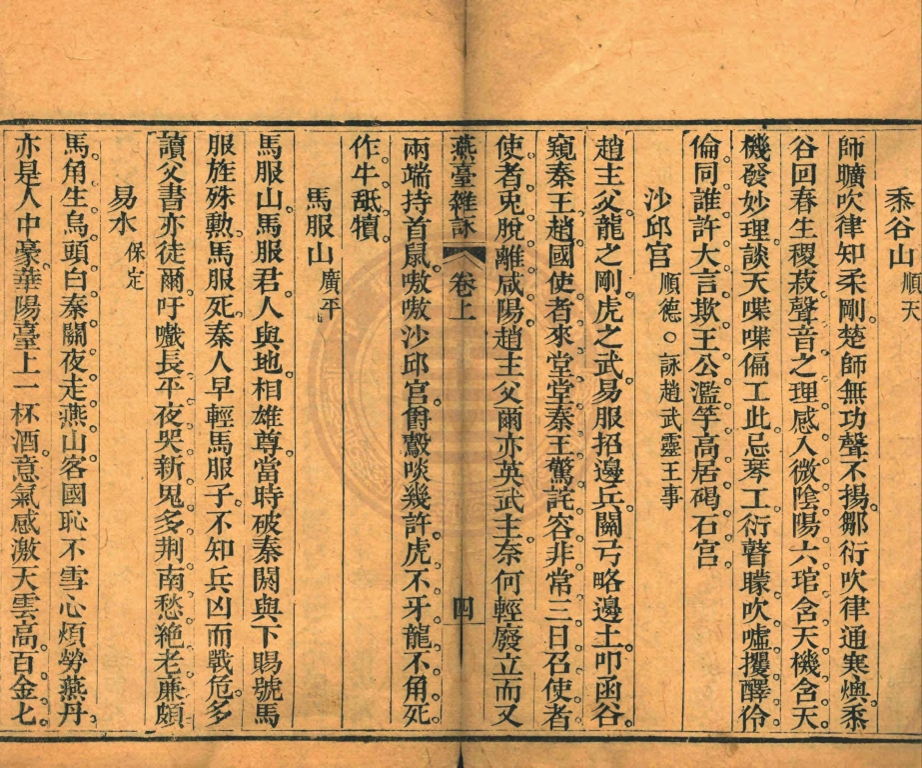 黍谷山 順天
師曠吹律知柔剛楚師無功聲不揚鄒衍吹律通寒燠黍
谷回春生稷菽聲音之理感人微陰陽六琯含天機含天
機發妙理談天喋喋偏工此忌琴工衍瞽矇吹噓攫醳伶
倫同誰許大言欺王公濫竽高居碣石宫
沙邱宫 順德○詠趙武靈王事
趙主父龍之剛虎之武易服招邊兵關弓略邊土叩函谷
窺秦王趙國使者來堂堂秦王驚詫容非常三日召使者
燕臺雜詠 卷上 四
使者兎脫離咸陽趙主父爾亦英武主奈何輕廢立而又
兩端持首鼠嗷嗷沙邱宫爵鷇啖幾許虎不牙龍不角死
作牛舐犢
馬服山 廣平
馬服山馬服君人與地相雄尊當時破秦閼與下賜號馬
服旌殊勲馬服死秦人早輕馬服子不知兵凶而戰危多
讀父書亦徒爾吁嚱長平夜哭新鬼多荆南愁絶老廉頗
易水 保定
馬角生烏頭白秦關夜走燕山客國恥不雪心煩勞燕丹
亦是人中豪華陽臺上一杯酒意氣感激天雲高百金七